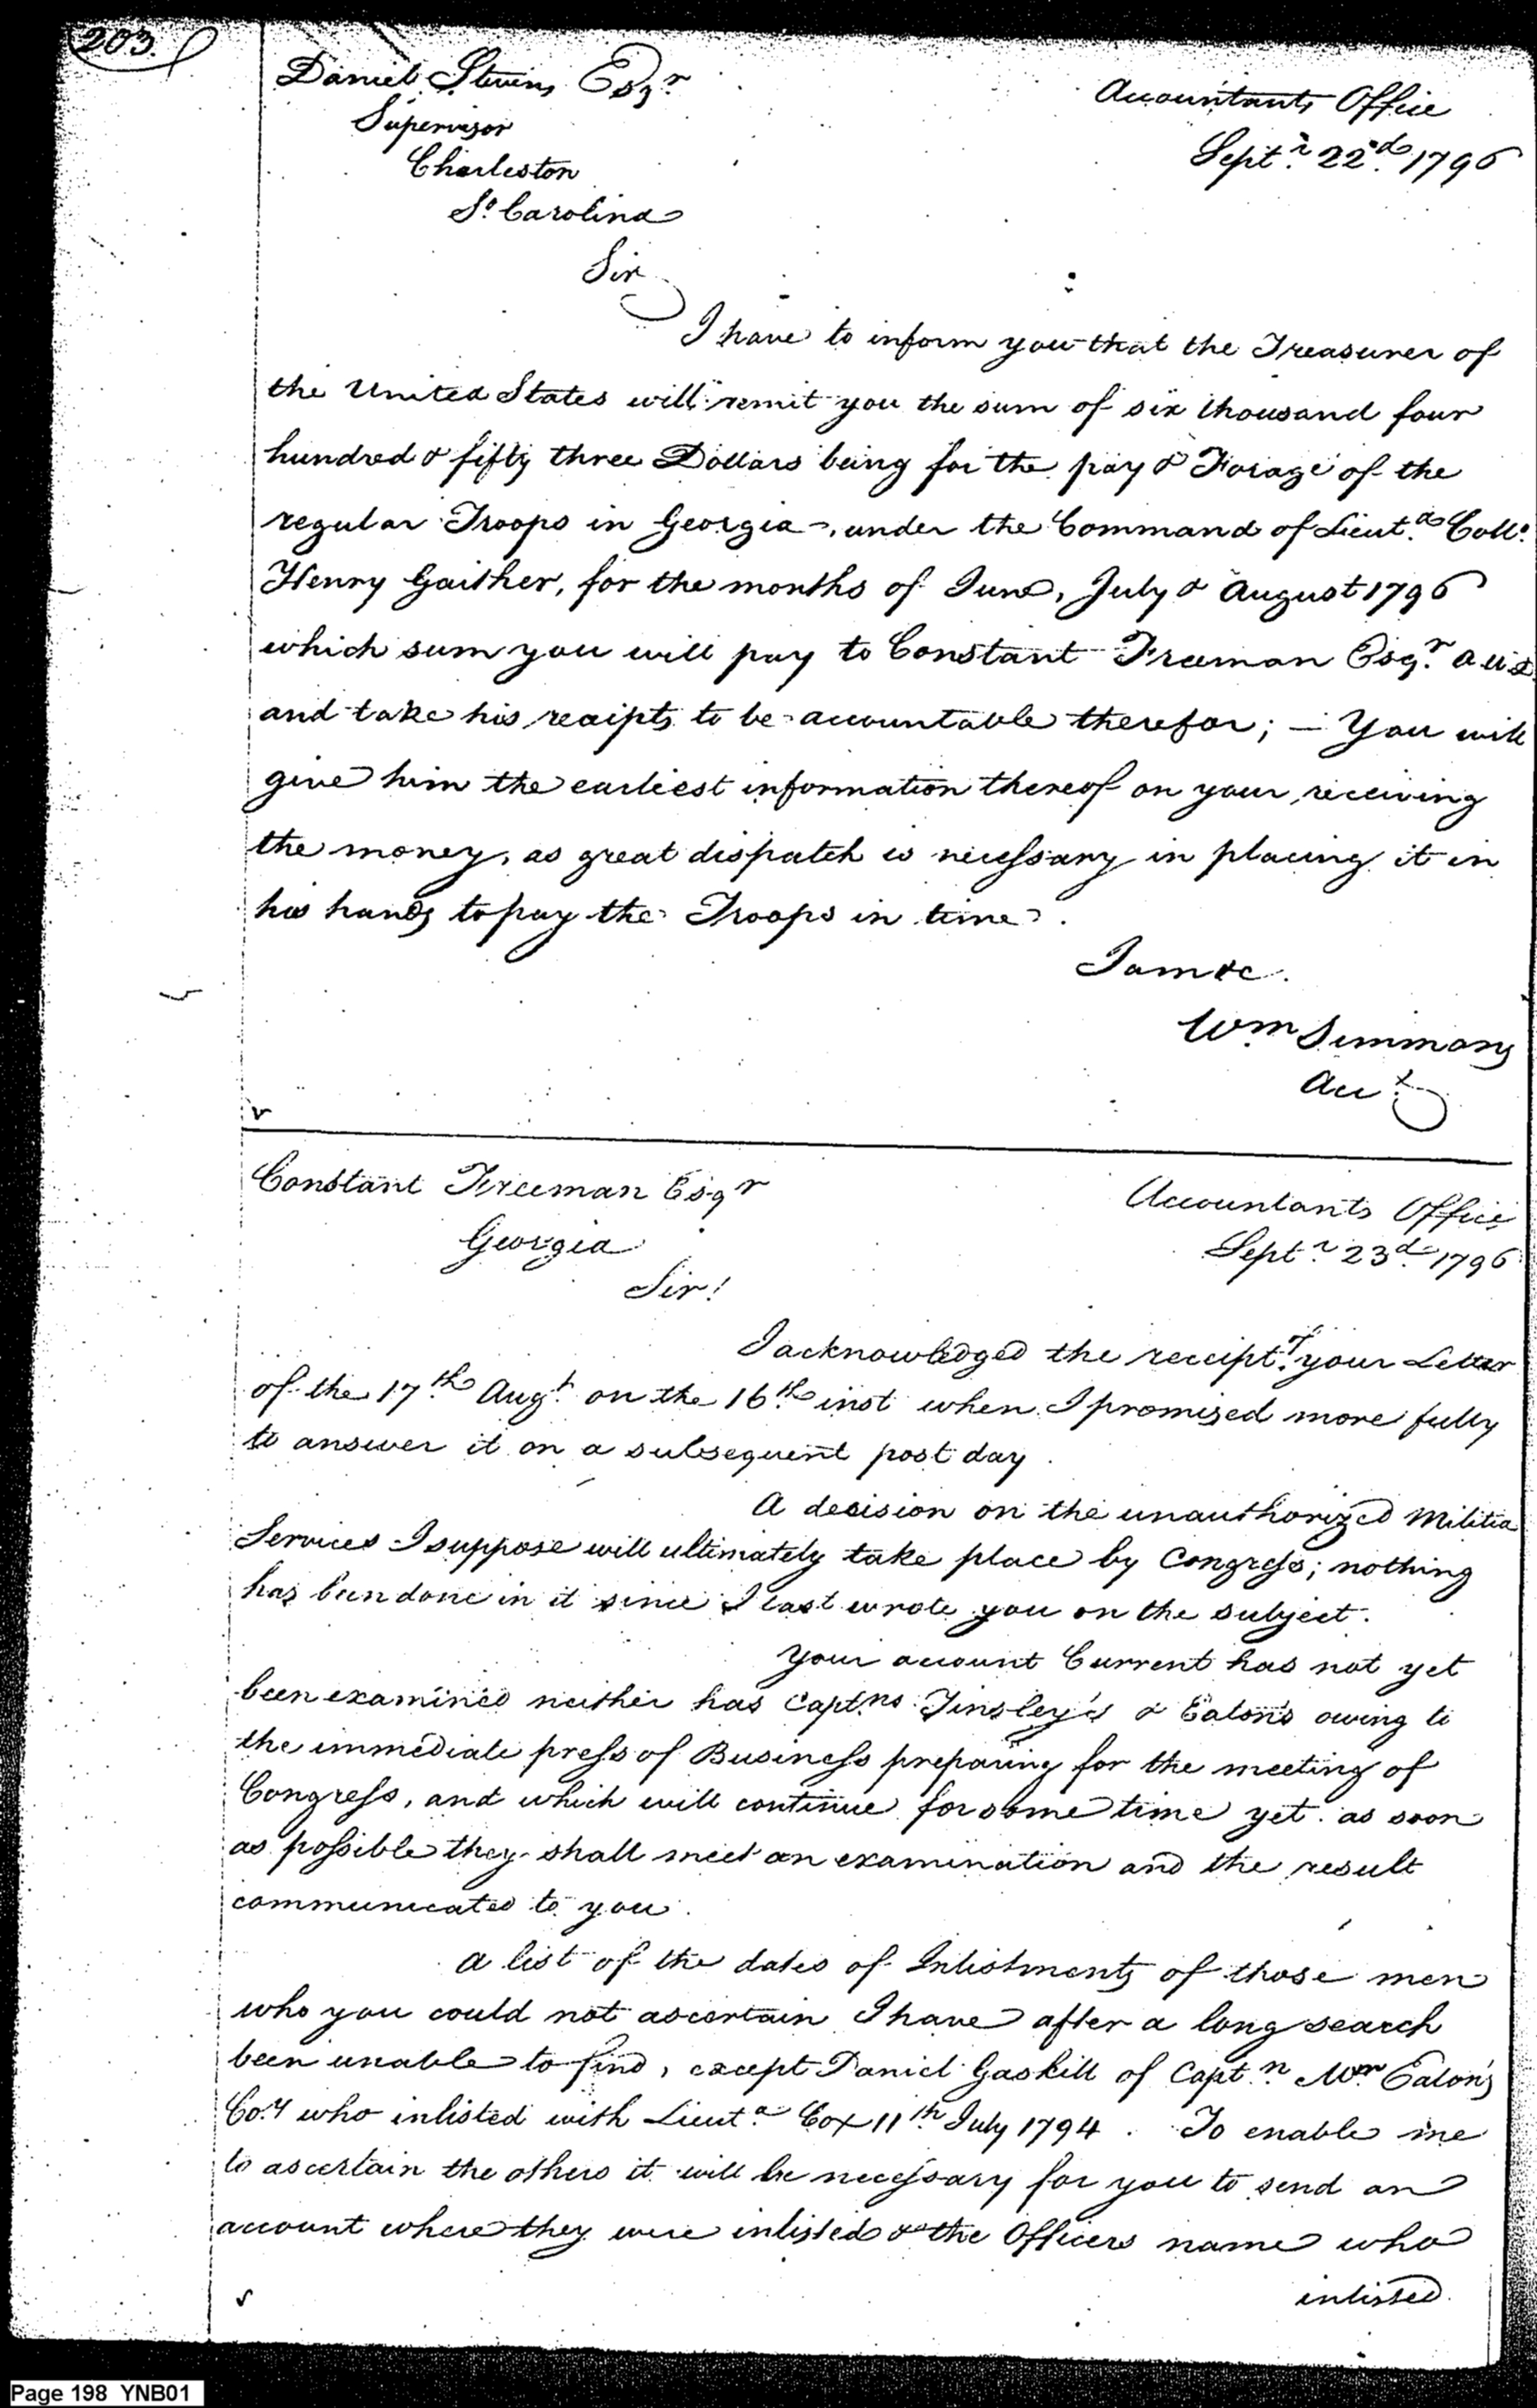 203.
Daniel Stevens Esqr
Accountants Office
Supervisor
Septr. 22d. 1796
Charleston
So. Carolina
Sir
I have to inform you that the Treasurer of
the United States will remit you the sum of six thousand four
hundred & fifty three Dollars being for the pay & Forage of the
regular Troops in Georgia, under the Command of Lieut. Coll.
Henry Gaither, for the months of June, July & August 1796
which sum you will pay to Constant Freeman Esqr.
and take his receipts to be accountable therefor; — You will
give him the earliest information thereof on your receiving
the money, as great dispatch is necessary in placing it in
his hands to pay the Troops in time.
I am &c.
Wm Simmons
Acct.
Constant Freeman Esqr
Accountants Office
Georgia
Septr. 23d. 1796
Sir!
I acknowledged the receipt of your Letter
of the 17th. Augt. on the 16th. inst when I promised more fully
to answer it on a subsequent post day.
A decision on the unauthorized Militia
Services I suppose will ultimately take place by Congress; nothing
has been done in it since I last wrote you on the subject.
Your account Current has not yet
been examined neither has Capt.ns Tinsley's & Eaton's owing to
the immediate press of Business preparing for the meeting of
Congress, and which will continue for some time yet. as soon
as possible they shall meet an examination and the result
communicated to you.
A list of the dates of Inlistments of those men
who you could not ascertain I have after a long search
been unable to find, except Daniel Gaskill of Capt.n Wm. Eaton's
Co.y who inlisted with Lieut. Cox 11th. July 1794. To enable me
to ascertain the others it will be necessary for you to send an
account where they were inlisted & the Officers name who
inlisted
Page 198 YNB01